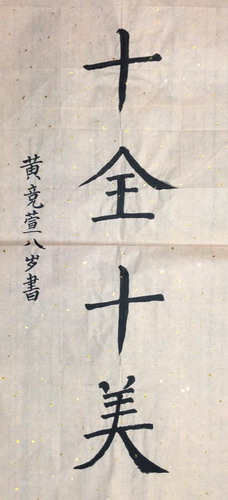 十全十美
黄竞萱八岁書